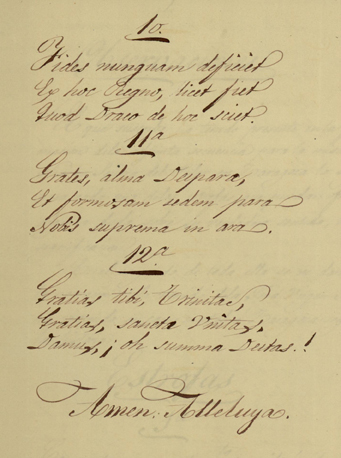 10.
Fides nunquam deficiet
Ex hoc Regno, licet fiet
Quod Draco de hoc sciet.
11ª
Grates, alma Deipara,
Et formosam sedem para
Nobis suprema in ara.
12.ª
Gratias tibi, Trinitas,
Gratias, sancta Unitas,
Damus, ¡ oh summa Deitas.!
Amen. Alleluya.